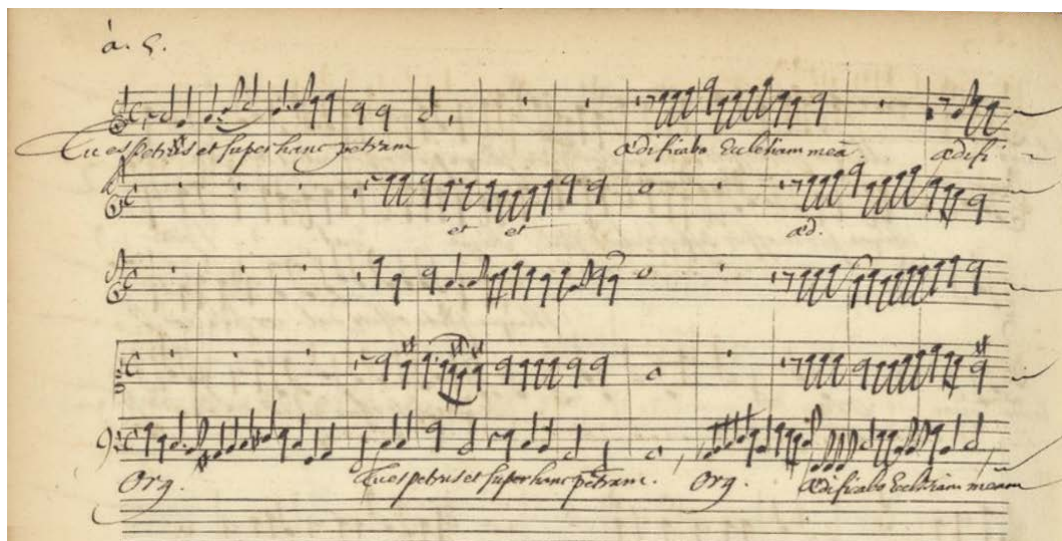 à. 5.
Tu es petrus et super hanc petram ædificabo Ecclesiam meã. ædifi
et et æd.
Org. Tu es petrus et super hanc petram. Org. ædificabo Ecclesiam meam